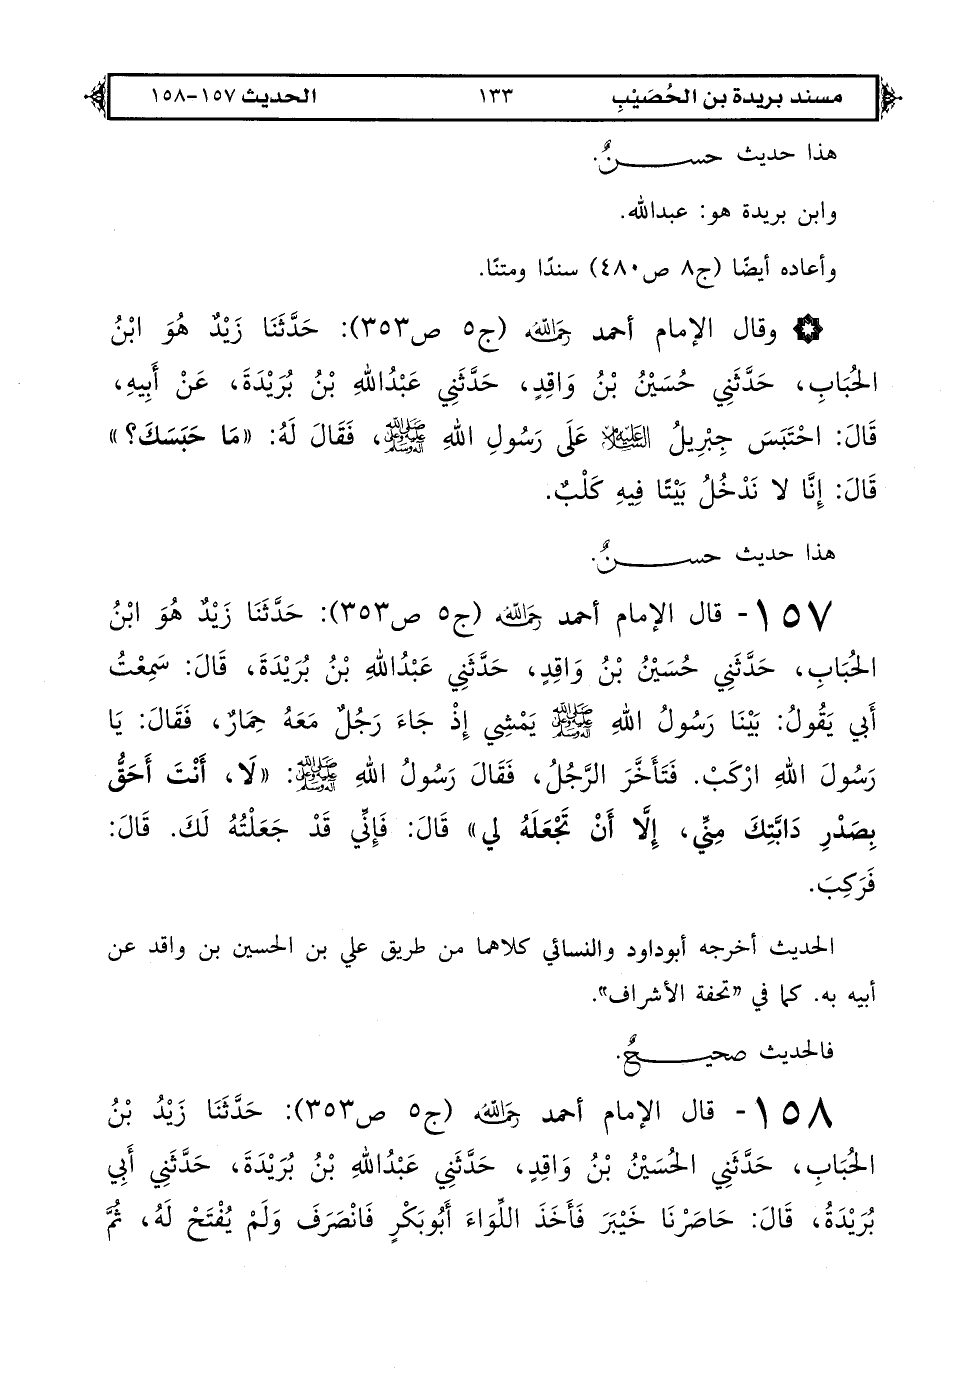 مسند بريدة بن الحُصَيْبِ ١٣٣ الحديث ١٥٧-١٥٨
هذا حديث حســـــنٌ.
وابن بريدة هو: عبدالله.
وأعاده أيضًا (ج٨ ص٤٨٠) سندًا ومتنًا.
وقال الإمام أحمد رَحِمَهُ اللهُ (ج٥ ص٣٥٣): حَدَّثَنَا زَيْدٌ هُوَ ابْنُ
الحُبَابِ، حَدَّثَنِي حُسَيْنُ بْنُ وَاقِدٍ، حَدَّثَنِي عَبْدُاللهِ بْنُ بُرَيْدَةَ، عَنْ أَبِيهِ،
قَالَ: احْتَبَسَ جِبْرِيلُ عَلَيْهِ السَّلَام عَلَى رَسُولِ اللهِ ﷺ، فَقَالَ لَهُ: «مَا حَبَسَكَ؟»
قَالَ: إِنَّا لا نَدْخُلُ بَيْتًا فِيهِ كَلْبٌ.
هذا حديث حســـــنٌ.
١٥٧- قال الإمام أحمد رَحِمَهُ اللهُ (ج٥ ص٣٥٣): حَدَّثَنَا زَيْدٌ هُوَ ابْنُ
الحُبَابِ، حَدَّثَنِي حُسَيْنُ بْنُ وَاقِدٍ، حَدَّثَنِي عَبْدُاللهِ بْنُ بُرَيْدَةَ، قَالَ: سَمِعْتُ
أَبِي يَقُولُ: بَيْنَا رَسُولُ اللهِ ﷺ يَمْشِي إِذْ جَاءَ رَجُلٌ مَعَهُ حِمَارٌ، فَقَالَ: يَا
رَسُولَ اللهِ ارْكَبْ. فَتَأَخَّرَ الرَّجُلُ، فَقَالَ رَسُولُ اللهِ ﷺ: «لَا، أَنْتَ أَحَقُّ
بِصَدْرِ دَابَّتِكَ مِنِّي، إِلَّا أَنْ تَجْعَلَهُ لِي» قَالَ: فَإِنِّي قَدْ جَعَلْتُهُ لَكَ. قَالَ:
فَرَكِبَ.
الحديث أخرجه أبوداود والنسائي كلاهما من طريق علي بن الحسين بن واقد عن
أبيه به. كما في "تحفة الأشراف".
فالحديث صحيـــــحٌ.
١٥٨- قال الإمام أحمد رَحِمَهُ اللهُ (ج٥ ص٣٥٣): حَدَّثَنَا زَيْدُ بْنُ
الحُبَابِ، حَدَّثَنِي الحُسَيْنُ بْنُ وَاقِدٍ، حَدَّثَنِي عَبْدُاللهِ بْنُ بُرَيْدَةَ، حَدَّثَنِي أَبِي
بُرَيْدَةُ، قَالَ: حَاصَرْنَا خَيْبَرَ فَأَخَذَ اللِّوَاءَ أَبُوبَكْرٍ فَانْصَرَفَ وَلَمْ يُفْتَحْ لَهُ، ثُمَّ